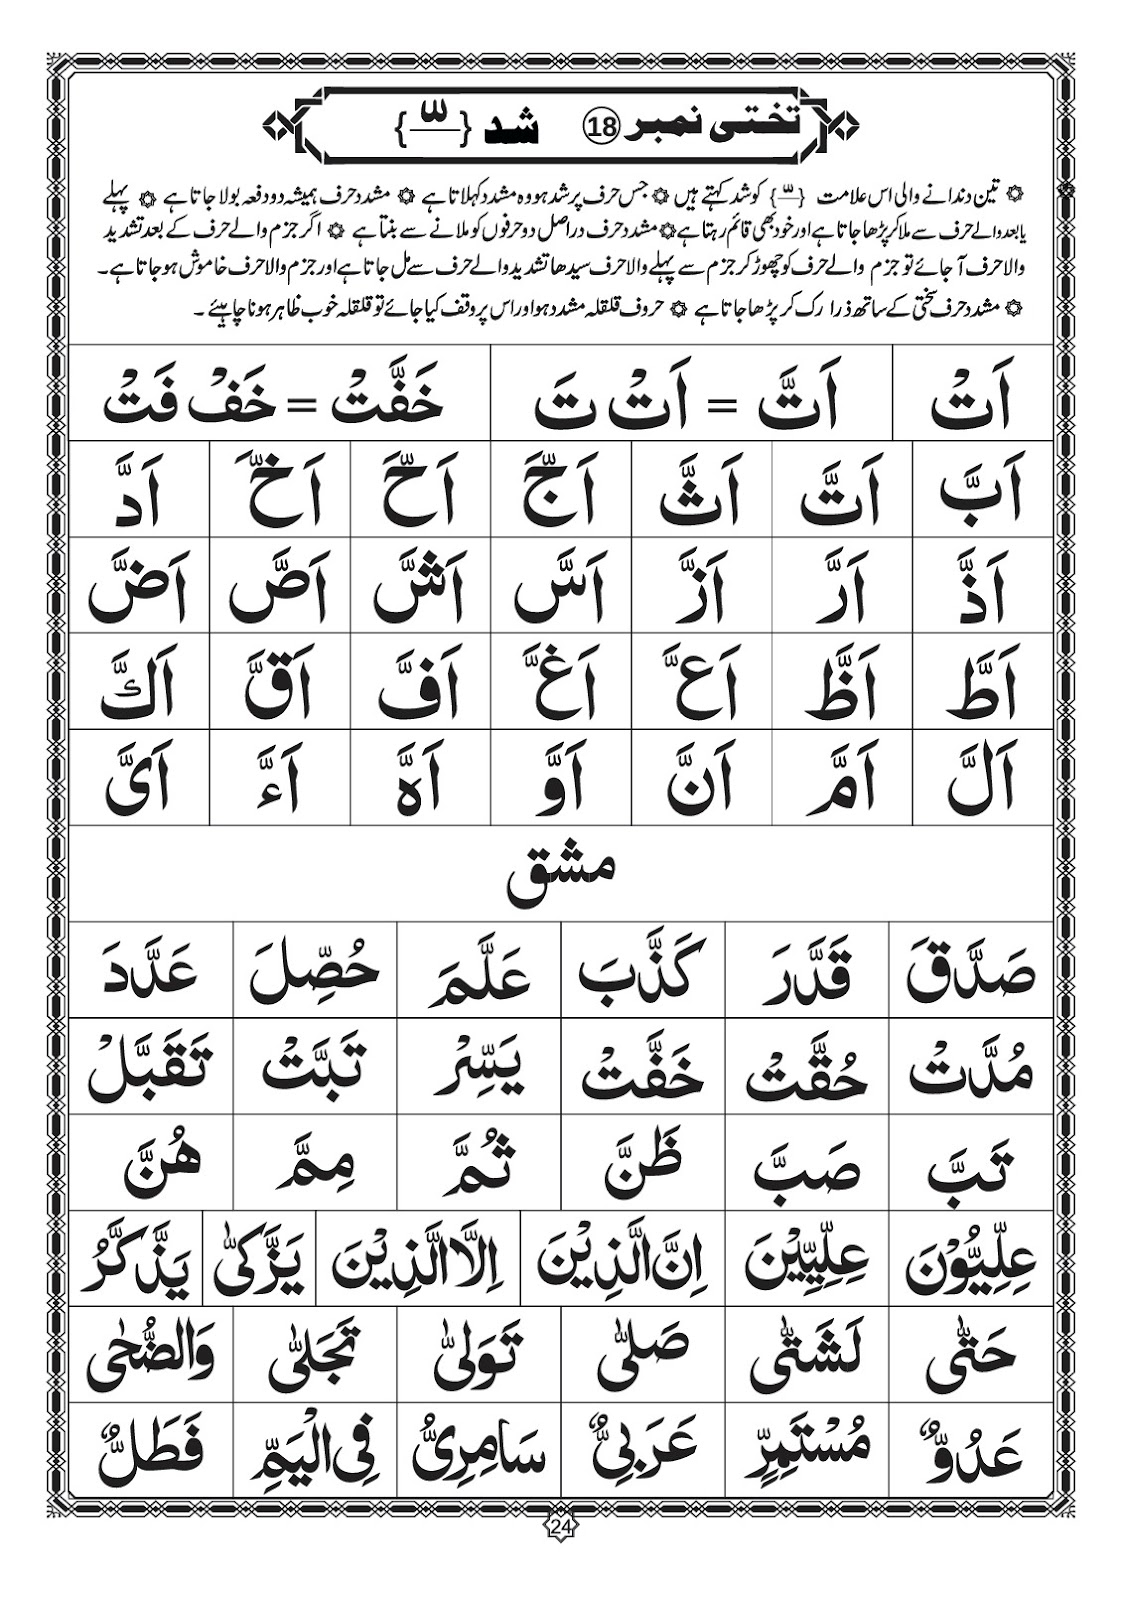 تختی نمبر 18 شد { ــّـ }
۞ تین دندانے والی اس علامت { ــّـ } کو شد کہتے ہیں ۞ جس حرف پر شد ہو وہ مشدد کہلاتا ہے ۞ مشدد حرف ہمیشہ دو دفعہ بولا جاتا ہے ۞ پہلے
یا بعد والے حرف سے ملا کر پڑھا جاتا ہے اور خود بھی قائم رہتا ہے ۞ مشدد حرف دراصل دو حرفوں کو ملانے سے بنتا ہے ۞ اگر جزم والے حرف کے بعد تشدید
والا حرف آ جائے تو جزم والے حرف کو چھوڑ کر جزم سے پہلے والا حرف سیدھا تشدید والے حرف سے مل جاتا ہے اور جزم والا حرف خاموش ہو جاتا ہے۔
۞ مشدد حرف سختی کے ساتھ ذرا رک کر پڑھا جاتا ہے ۞ حروف قلقلہ مشدد ہو اور اس پر وقف کیا جائے تو قلقلہ خوب ظاہر ہونا چاہیئے ۔
اَتْ اَتَّ = اَتْ تَ خَفَّتْ = خَفْ فَتْ
اَبَّ اَتَّ اَثَّ اَجَّ اَحَّ اَخَّ اَدَّ
اَذَّ اَرَّ اَزَّ اَسَّ اَشَّ اَصَّ اَضَّ
اَطَّ اَظَّ اَعَّ اَغَّ اَفَّ اَقَّ اَكَّ
اَلَّ اَمَّ اَنَّ اَوَّ اَهَّ اَءَّ اَیَّ
مشق
صَدَّقَ قَدَّرَ كَذَّبَ عَلَّمَ حُصِّلَ عَدَّدَ
مُدَّتْ حُقَّتْ خَفَّتْ يَسِّرْ تَبَّتْ تَقَبَّلْ
تَبَّ صَبَّ ظَنَّ ثُمَّ مِمَّ هُنَّ
عِلِّيُّوْنَ عِلِّيِّيْنَ اِنَّ الَّذِيْنَ اِلَّا الَّذِيْنَ يَزَّكّٰى يَذَّكَّرُ
حَتّٰى لَشَتّٰى صَلّٰى تَوَلّٰى تَجَلّٰى وَالضُّحٰى
عَدُوٌّ مُسْتَمِرٍّ عَرَبِیٌّ سَامِرِیُّ فِی الْيَمِّ فَطَلٌّ
24